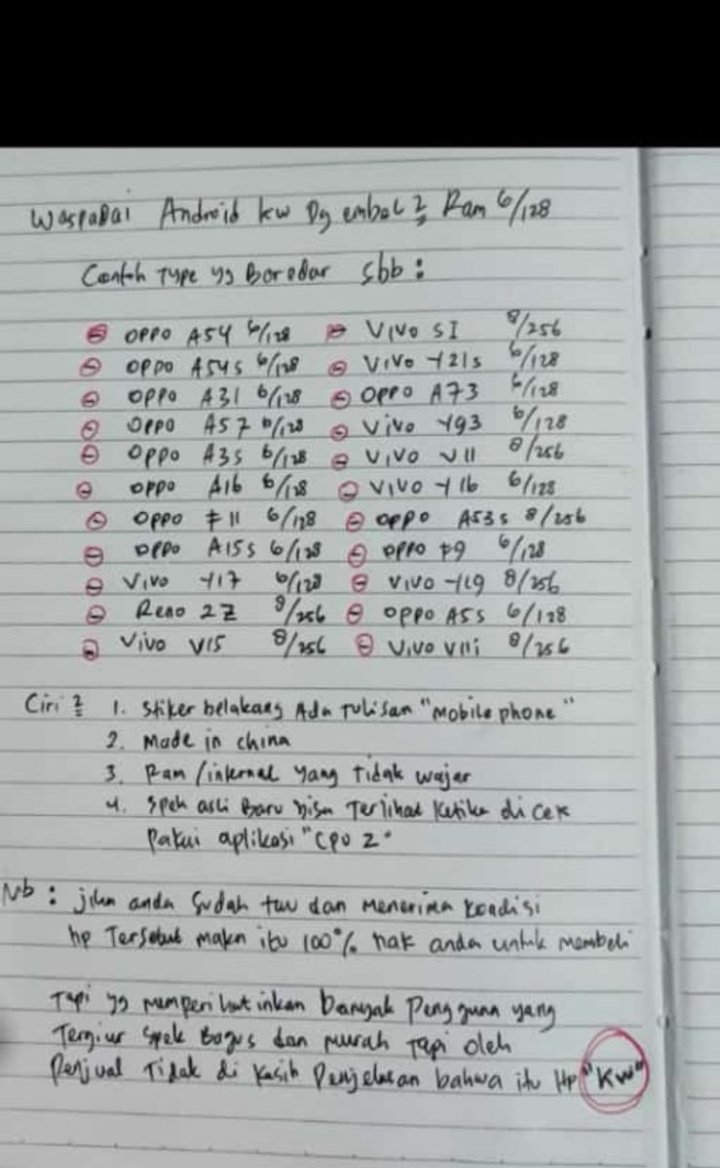 Waspadai Android kw Dg embel2 Ram 6/128
Contoh Type yg Beredar sbb :
OPPO A54 6/128 VIVO S1 8/256
OPPO A54s 6/128 VIVO Y21s 6/128
OPPO A31 6/128 OPPO A73 6/128
OPPO A57 6/128 Vivo Y93 6/128
OPPO A3s 6/128 VIVO V11 8/256
OPPO A16 6/128 VIVO Y16 6/128
OPPO F11 6/128 OPPO A53s 8/256
OPPO A15s 6/128 OPPO F9 6/128
VIVO Y17 6/128 VIVO Y19 8/256
Reno 2Z 8/256 OPPO A5s 6/128
Vivo V15 8/256 VIVO V11i 8/256
Ciri2 1. Stiker belakang Ada Tulisan "Mobile phone"
2. Made in china
3. Ram/internal yang tidak wajar
4. Spek asli Baru bisa Terlihat Ketika di Cek
Pakai aplikasi "CPU Z"
Nb : jika anda Sudah tau dan Menerima kondisi
hp Tersebut maka itu 100% hak anda untuk membeli
Tapi yg memperihatinkan banyak Pengguna yang
Tergiur Spek Bagus dan Murah Tapi oleh
Penjual Tidak di kasih Penjelasan bahwa itu Hp "KW"